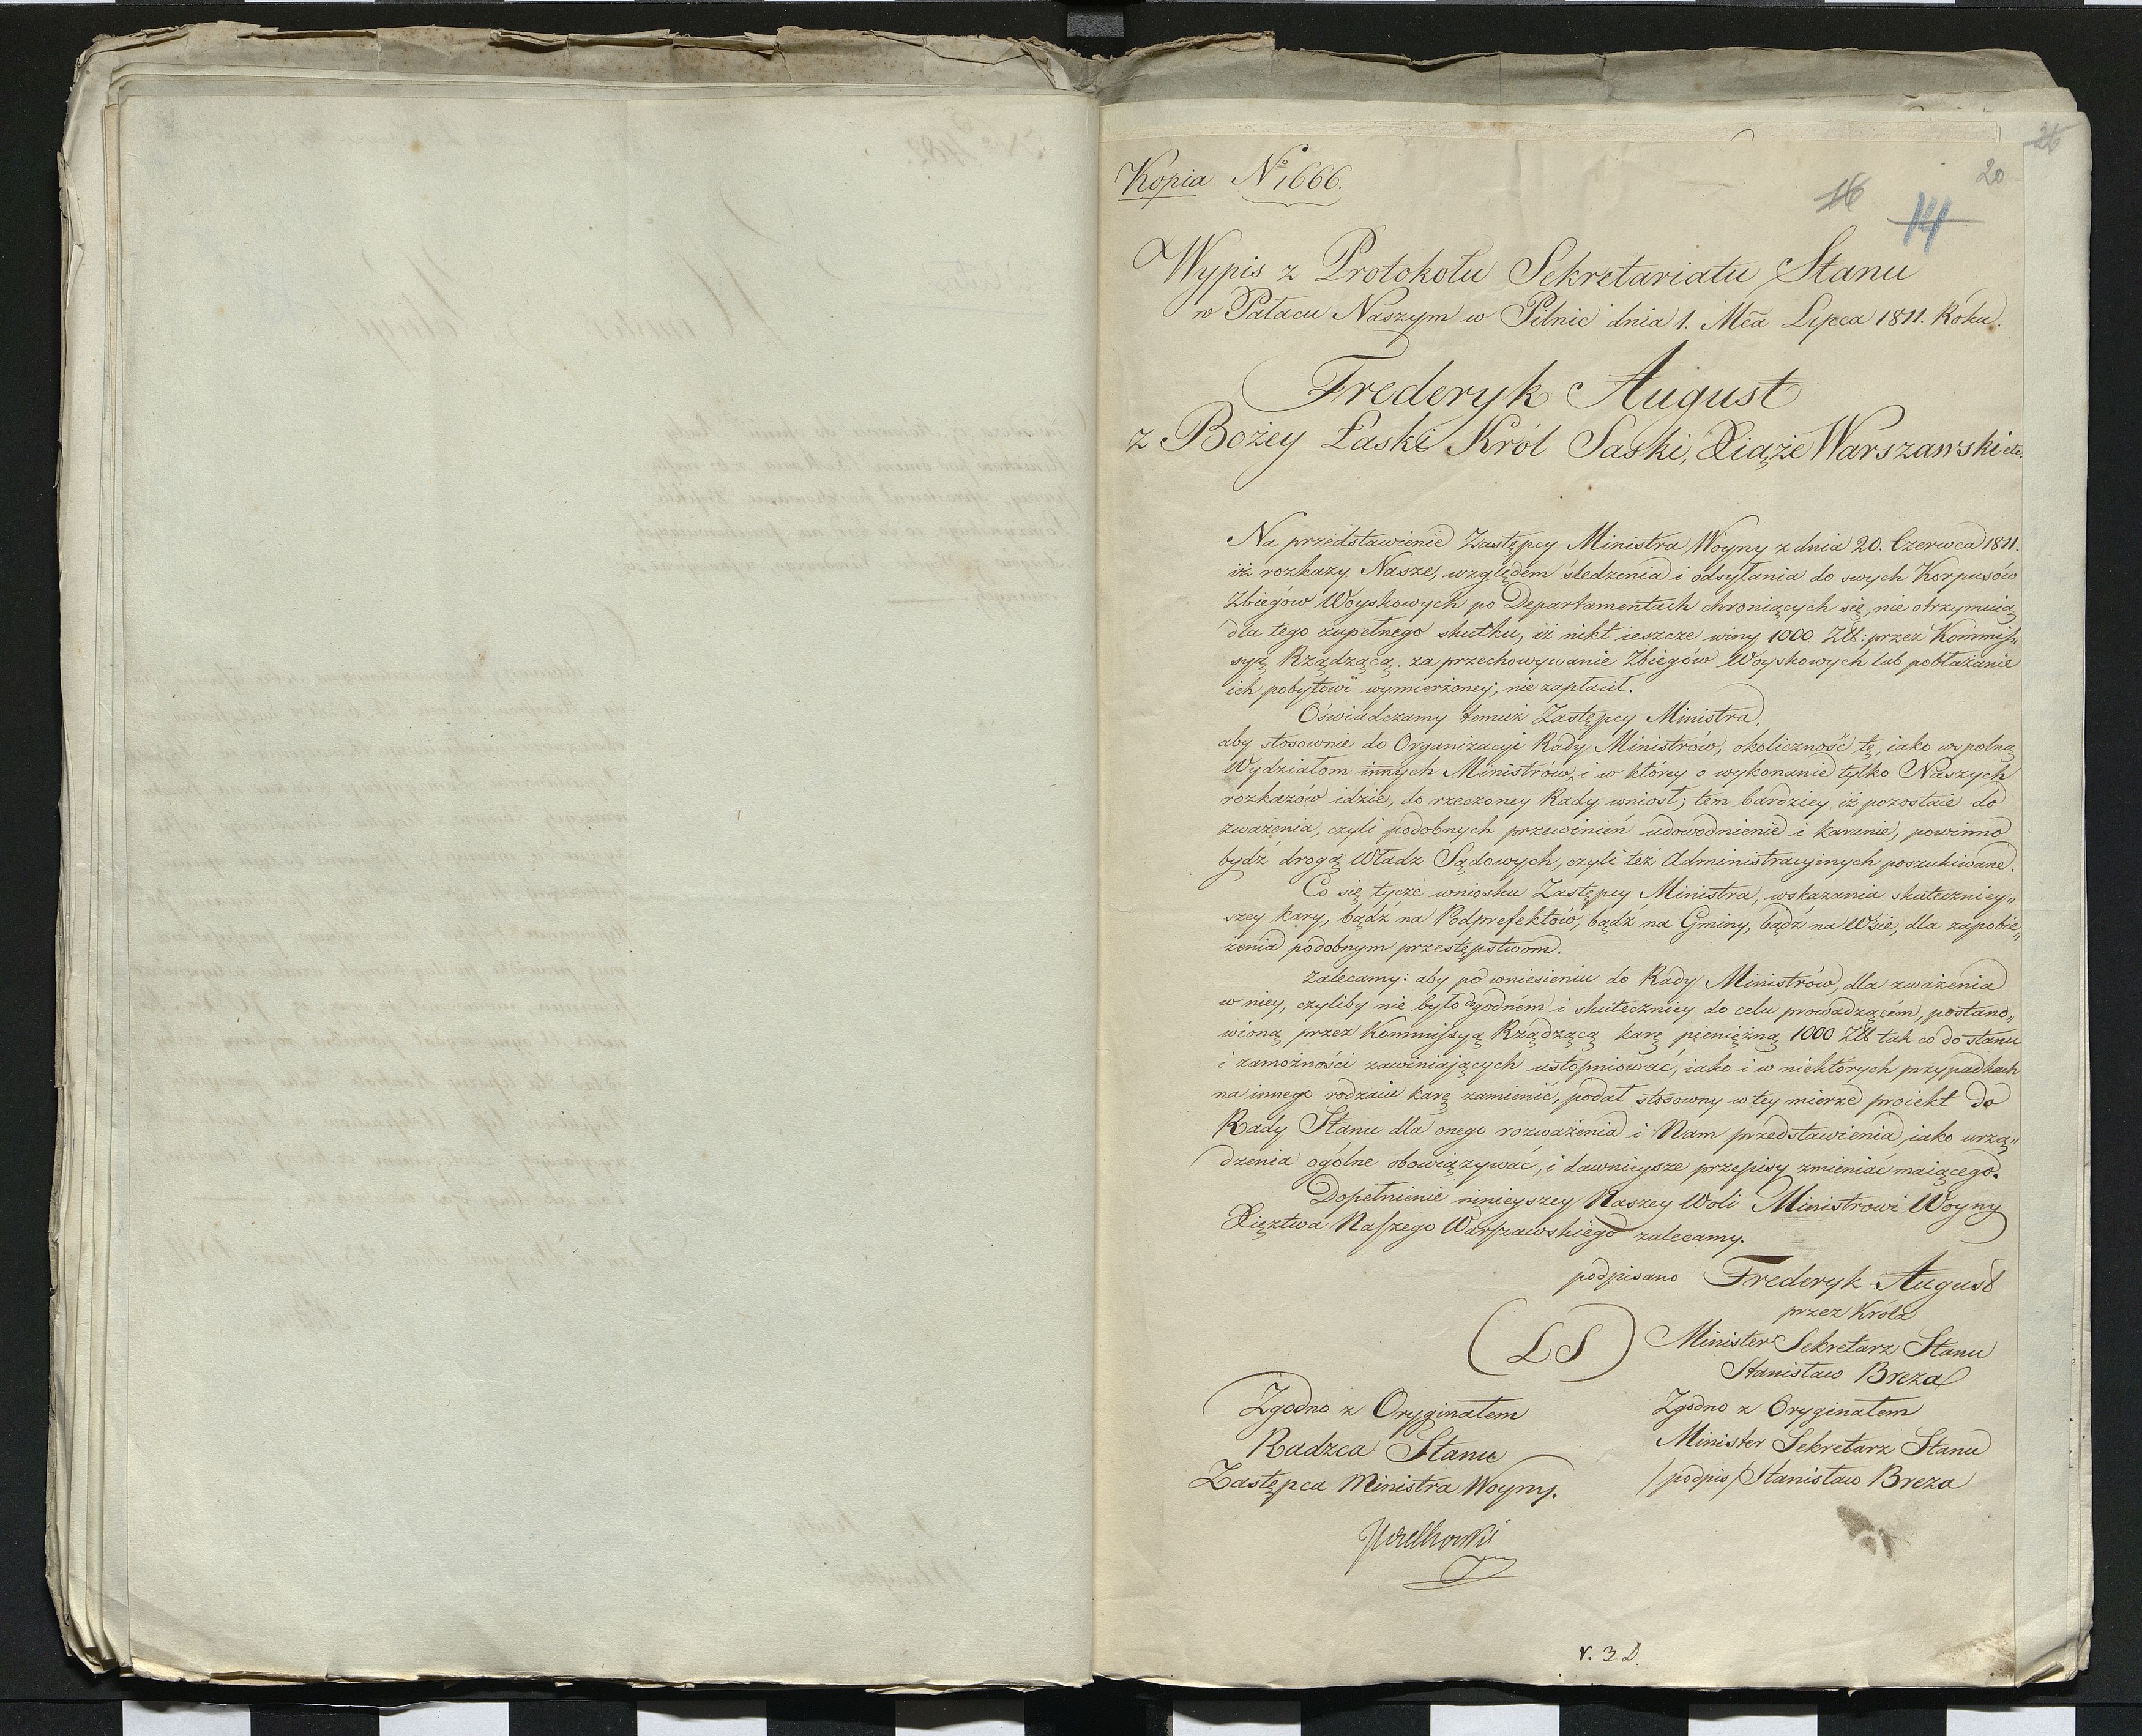 Kopia No 1666.
26
20
16
14
Wypis z Protokołu Sekretariatu Stanu
w Pałacu Naszym w Pilnic dnia 1. Mca Lipca 1811. Roku.
Frederyk August
z Bożey Łaski Król Saski, Xiąże Warszawski etc.
Na przedstawienie Zastępcy Ministra Woyny z dnia 20. Czerwca 1811.
iż rozkazy Nasze, względem śledzenia i odsyłania do swych Korpusów
Zbiegów Woyskowych po Departamentach chroniących się, nie otrzymuią
dla tego zupełnego skutku, iż nikt ieszcze winy 1000 Złł: przez Kommis„
syą Rządzącą za przechowywanie Zbiegów Woyskowych lub pobłażanie
ich pobytowi wymierzoney, nie zapłacił.
Oświadczamy temuż Zastępcy Ministra,
aby stosownie do Organizacyi Rady Ministrów, okoliczność tę, iako wspolną
Wydziałom innych Ministrów, i w którey o wykonanie tylko Naszych
rozkazów idzie, do rzeczoney Rady wniosł; tem bardziey iż pozostaie do
zważenia, czyli podobnych przewinień udowodnienie i karanie, powinno
bydź drogą Władz Sądowych, czyli też Administracyinych poszukiwane.
Co się tycze wniosku Zastępcy Ministra, wskazania skuteczniey„
szey kary, bądź na Podprefektów, bądź na Gminy, bądź na Wsie, dla zapobie„
żenia podobnym przestępstwom.
Zalecamy: aby po wniesieniu do Rady Ministrów, dla zważenia
w niey, czyliby nie było dogodném i skuteczniey do celu prowadzącém, postano„
wioną przez Kommissyą Rządzącą karę pieniężną 1000 Złł tak co do stanu
i zamożności zawiniających ustopniować, iako i w niektorych przypadkach
na innego rodzaiu karę zamienić, podał stosowny w tey mierze proiekt do
Rady Stanu dla onego rozważenia i Nam przedstawienia, iako urzą„
dzenia ogólne obowiązywać, i dawnieysze przepisy zmieniać maiącego.
Dopełnienie ninieyszey Naszey Woli Ministrowi Woyny
Xięztwa Naszego Warszawskiego zalecamy.
podpisano Frederyk August
przez Króla
(LS) Minister Sekretarz Stanu
Stanisław Breza
Zgodno z Oryginałem
Radzca Stanu
Zastępca Ministra Woyny.
Wielhorski
Zgodno z Oryginałem
Minister Sekretarz Stanu
/podpis/ Stanisław Breza
v. 3 D.